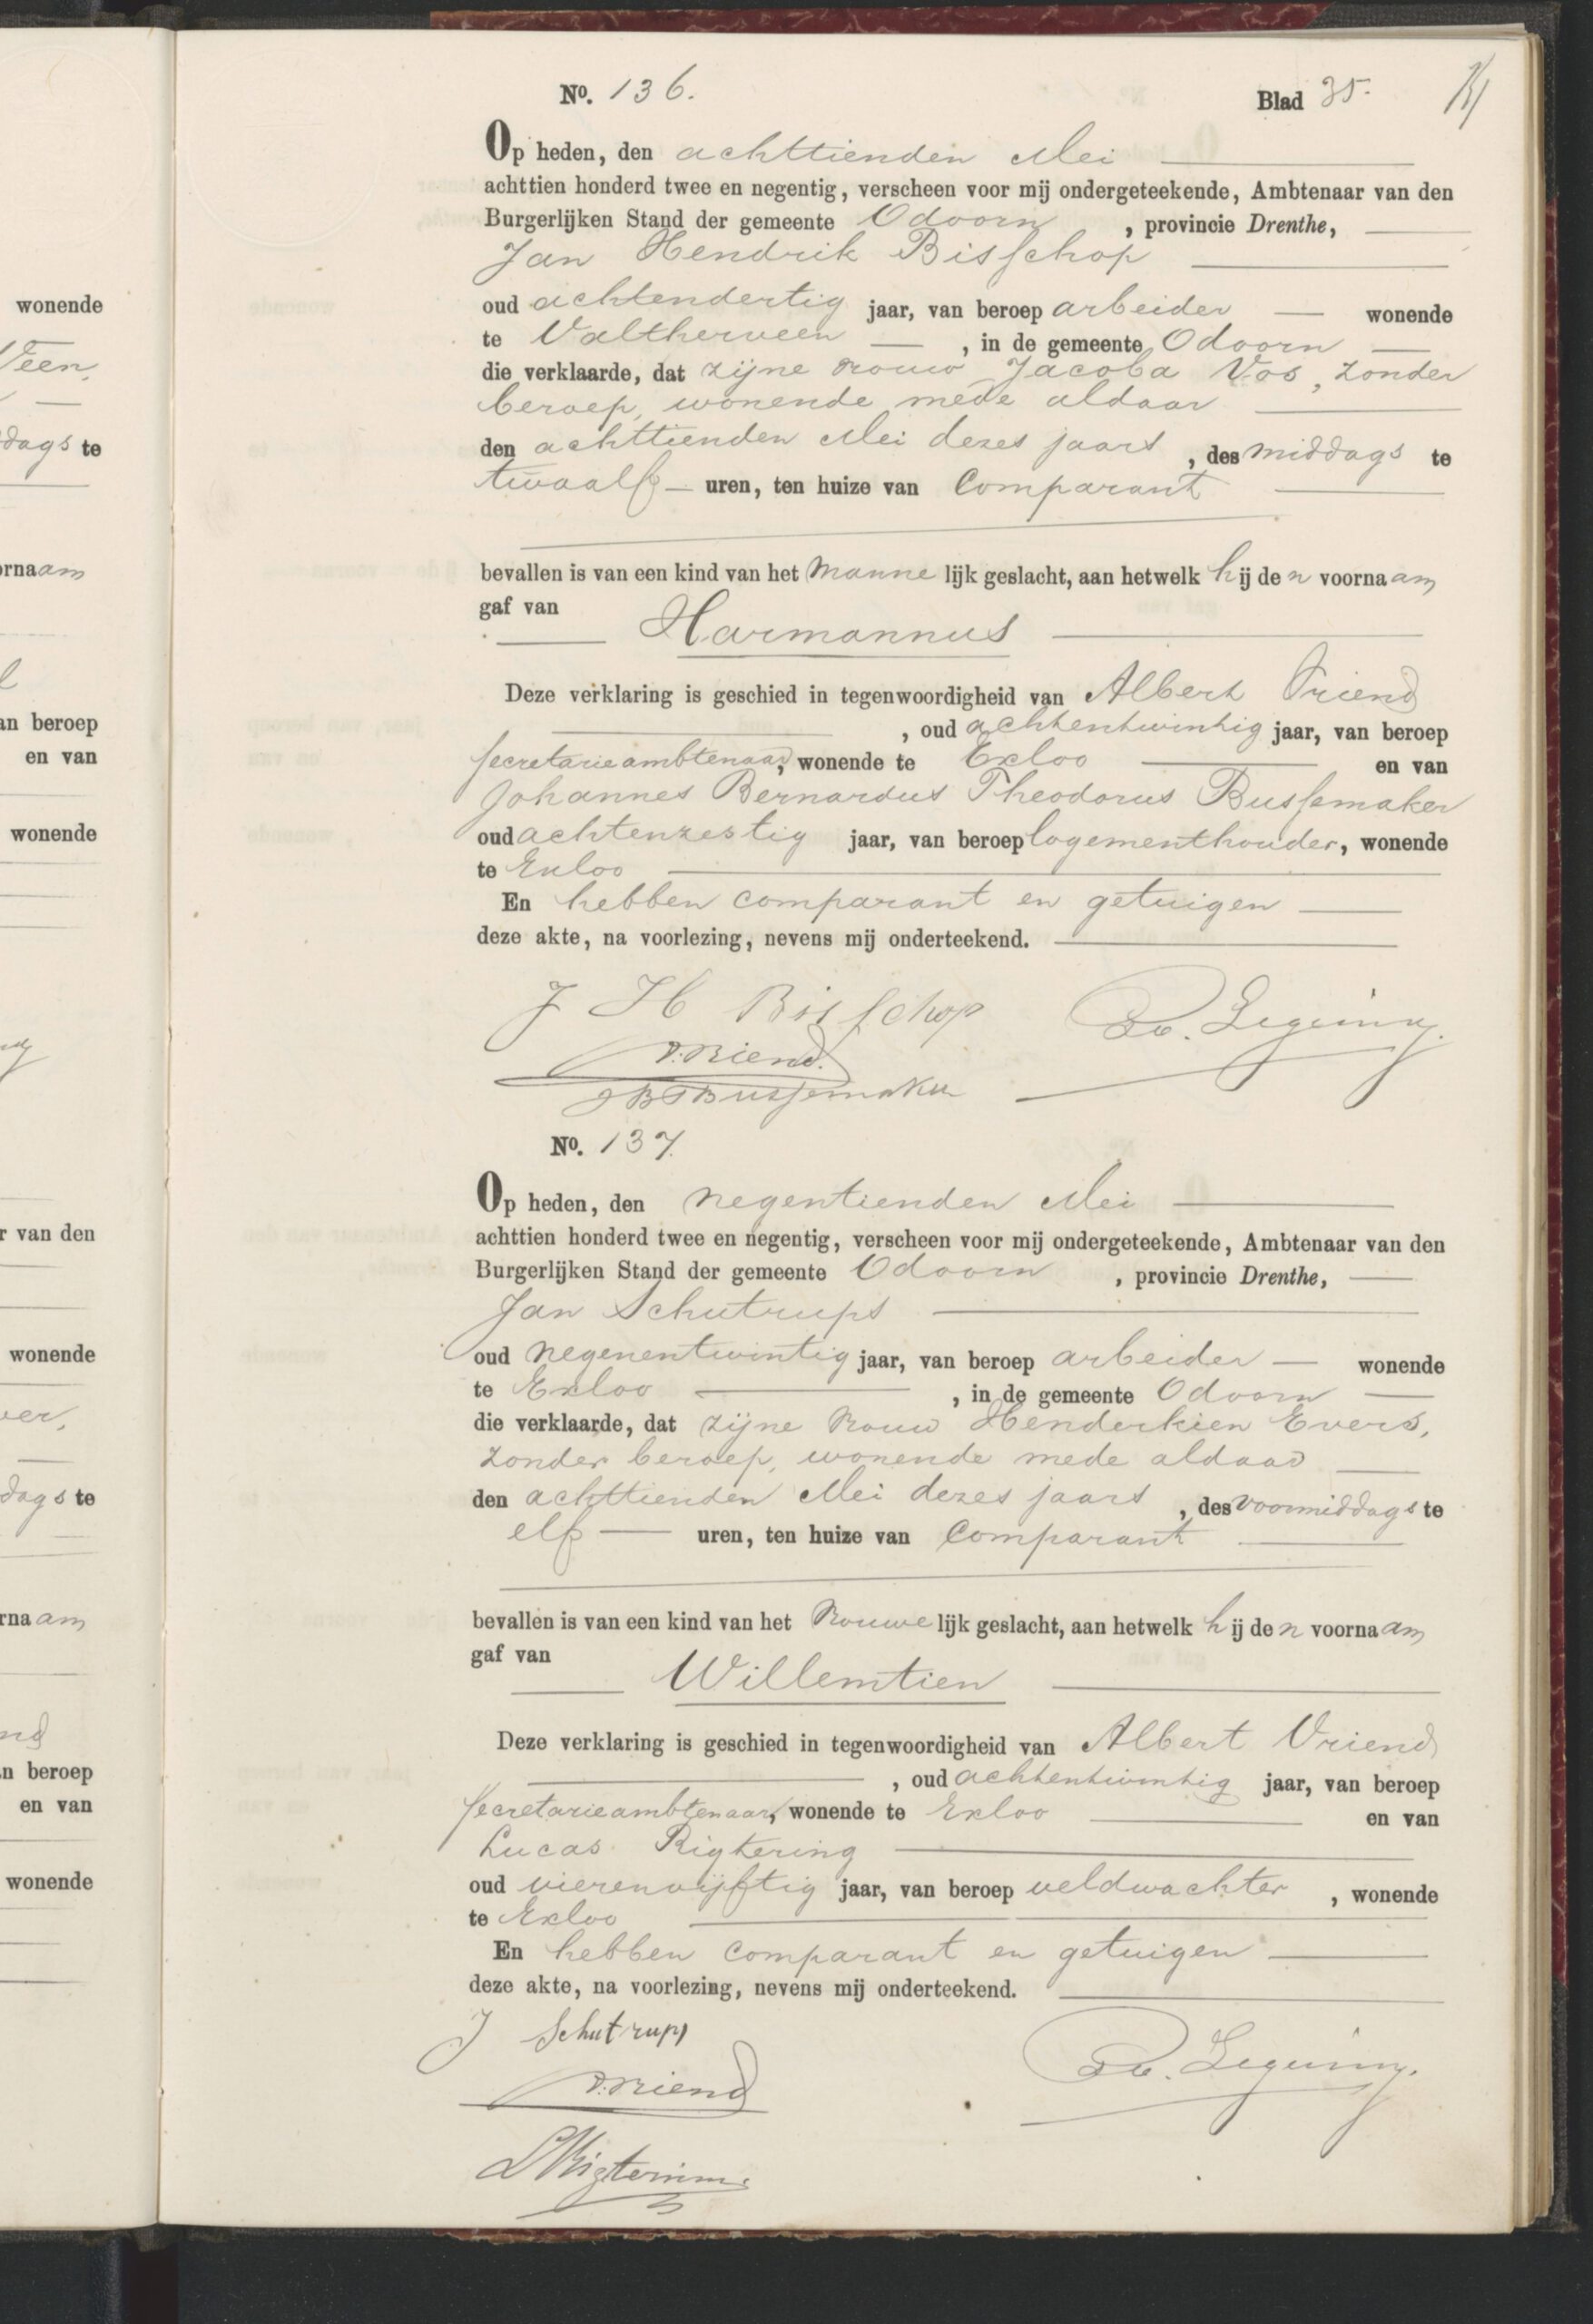 No. 136.
Blad 35.
Op heden, den achttienden Mei
achttien honderd twee en negentig, verscheen voor mij ondergeteekende, Ambtenaar van den
Burgerlijken Stand der gemeente Odoorn, provincie Drenthe,
Jan Hendrik Bisschop
oud achtendertig jaar, van beroep arbeider wonende
te Valtherveen, in de gemeente Odoorn
die verklaarde, dat zijne vrouw Jacoba Vos, zonder
beroep, wonende mede aldaar
den achttienden Mei dezes jaars, des middags te
twaalf uren, ten huize van Comparant
bevallen is van een kind van het mannelijk geslacht, aan hetwelk hij den voornaam
gaf van
Harmannus
Deze verklaring is geschied in tegenwoordigheid van Albert Vriend
, oud achtentwintig jaar, van beroep
secretarieambtenaar, wonende te Exloo en van
Johannes Bernardus Theodorus Bussemaker
oud achtenzestig jaar, van beroep logementhouder, wonende
te Exloo
En hebben comparant en getuigen
deze akte, na voorlezing, nevens mij onderteekend.
J H Bisschop
Vriend.
JBTBussemaker
No. 137.
Op heden, den negentienden Mei
achttien honderd twee en negentig, verscheen voor mij ondergeteekende, Ambtenaar van den
Burgerlijken Stand der gemeente Odoorn, provincie Drenthe,
Jan Schutrups
oud negenentwintig jaar, van beroep arbeider wonende
te Exloo, in de gemeente Odoorn
die verklaarde, dat zijne vrouw Henderkien Evers,
zonder beroep, wonende mede aldaar
den achttienden Mei dezes jaars, des voormiddags te
elf uren, ten huize van Comparant
bevallen is van een kind van het vrouwelijk geslacht, aan hetwelk hij den voornaam
gaf van
Willemtien
Deze verklaring is geschied in tegenwoordigheid van Albert Vriend
, oud achtentwintig jaar, van beroep
secretarieambtenaar, wonende te Exloo en van
Lucas Rigtering
oud vierenvijftig jaar, van beroep veldwachter, wonende
te Exloo
En hebben comparant en getuigen
deze akte, na voorlezing, nevens mij onderteekend.
J Schutrups
Vriend
LRigtering
wonende
Veen,
dags te
rnaam
an beroep
en van
wonende
r van den
wonende
dags te
rnaam
n beroep
en van
wonende